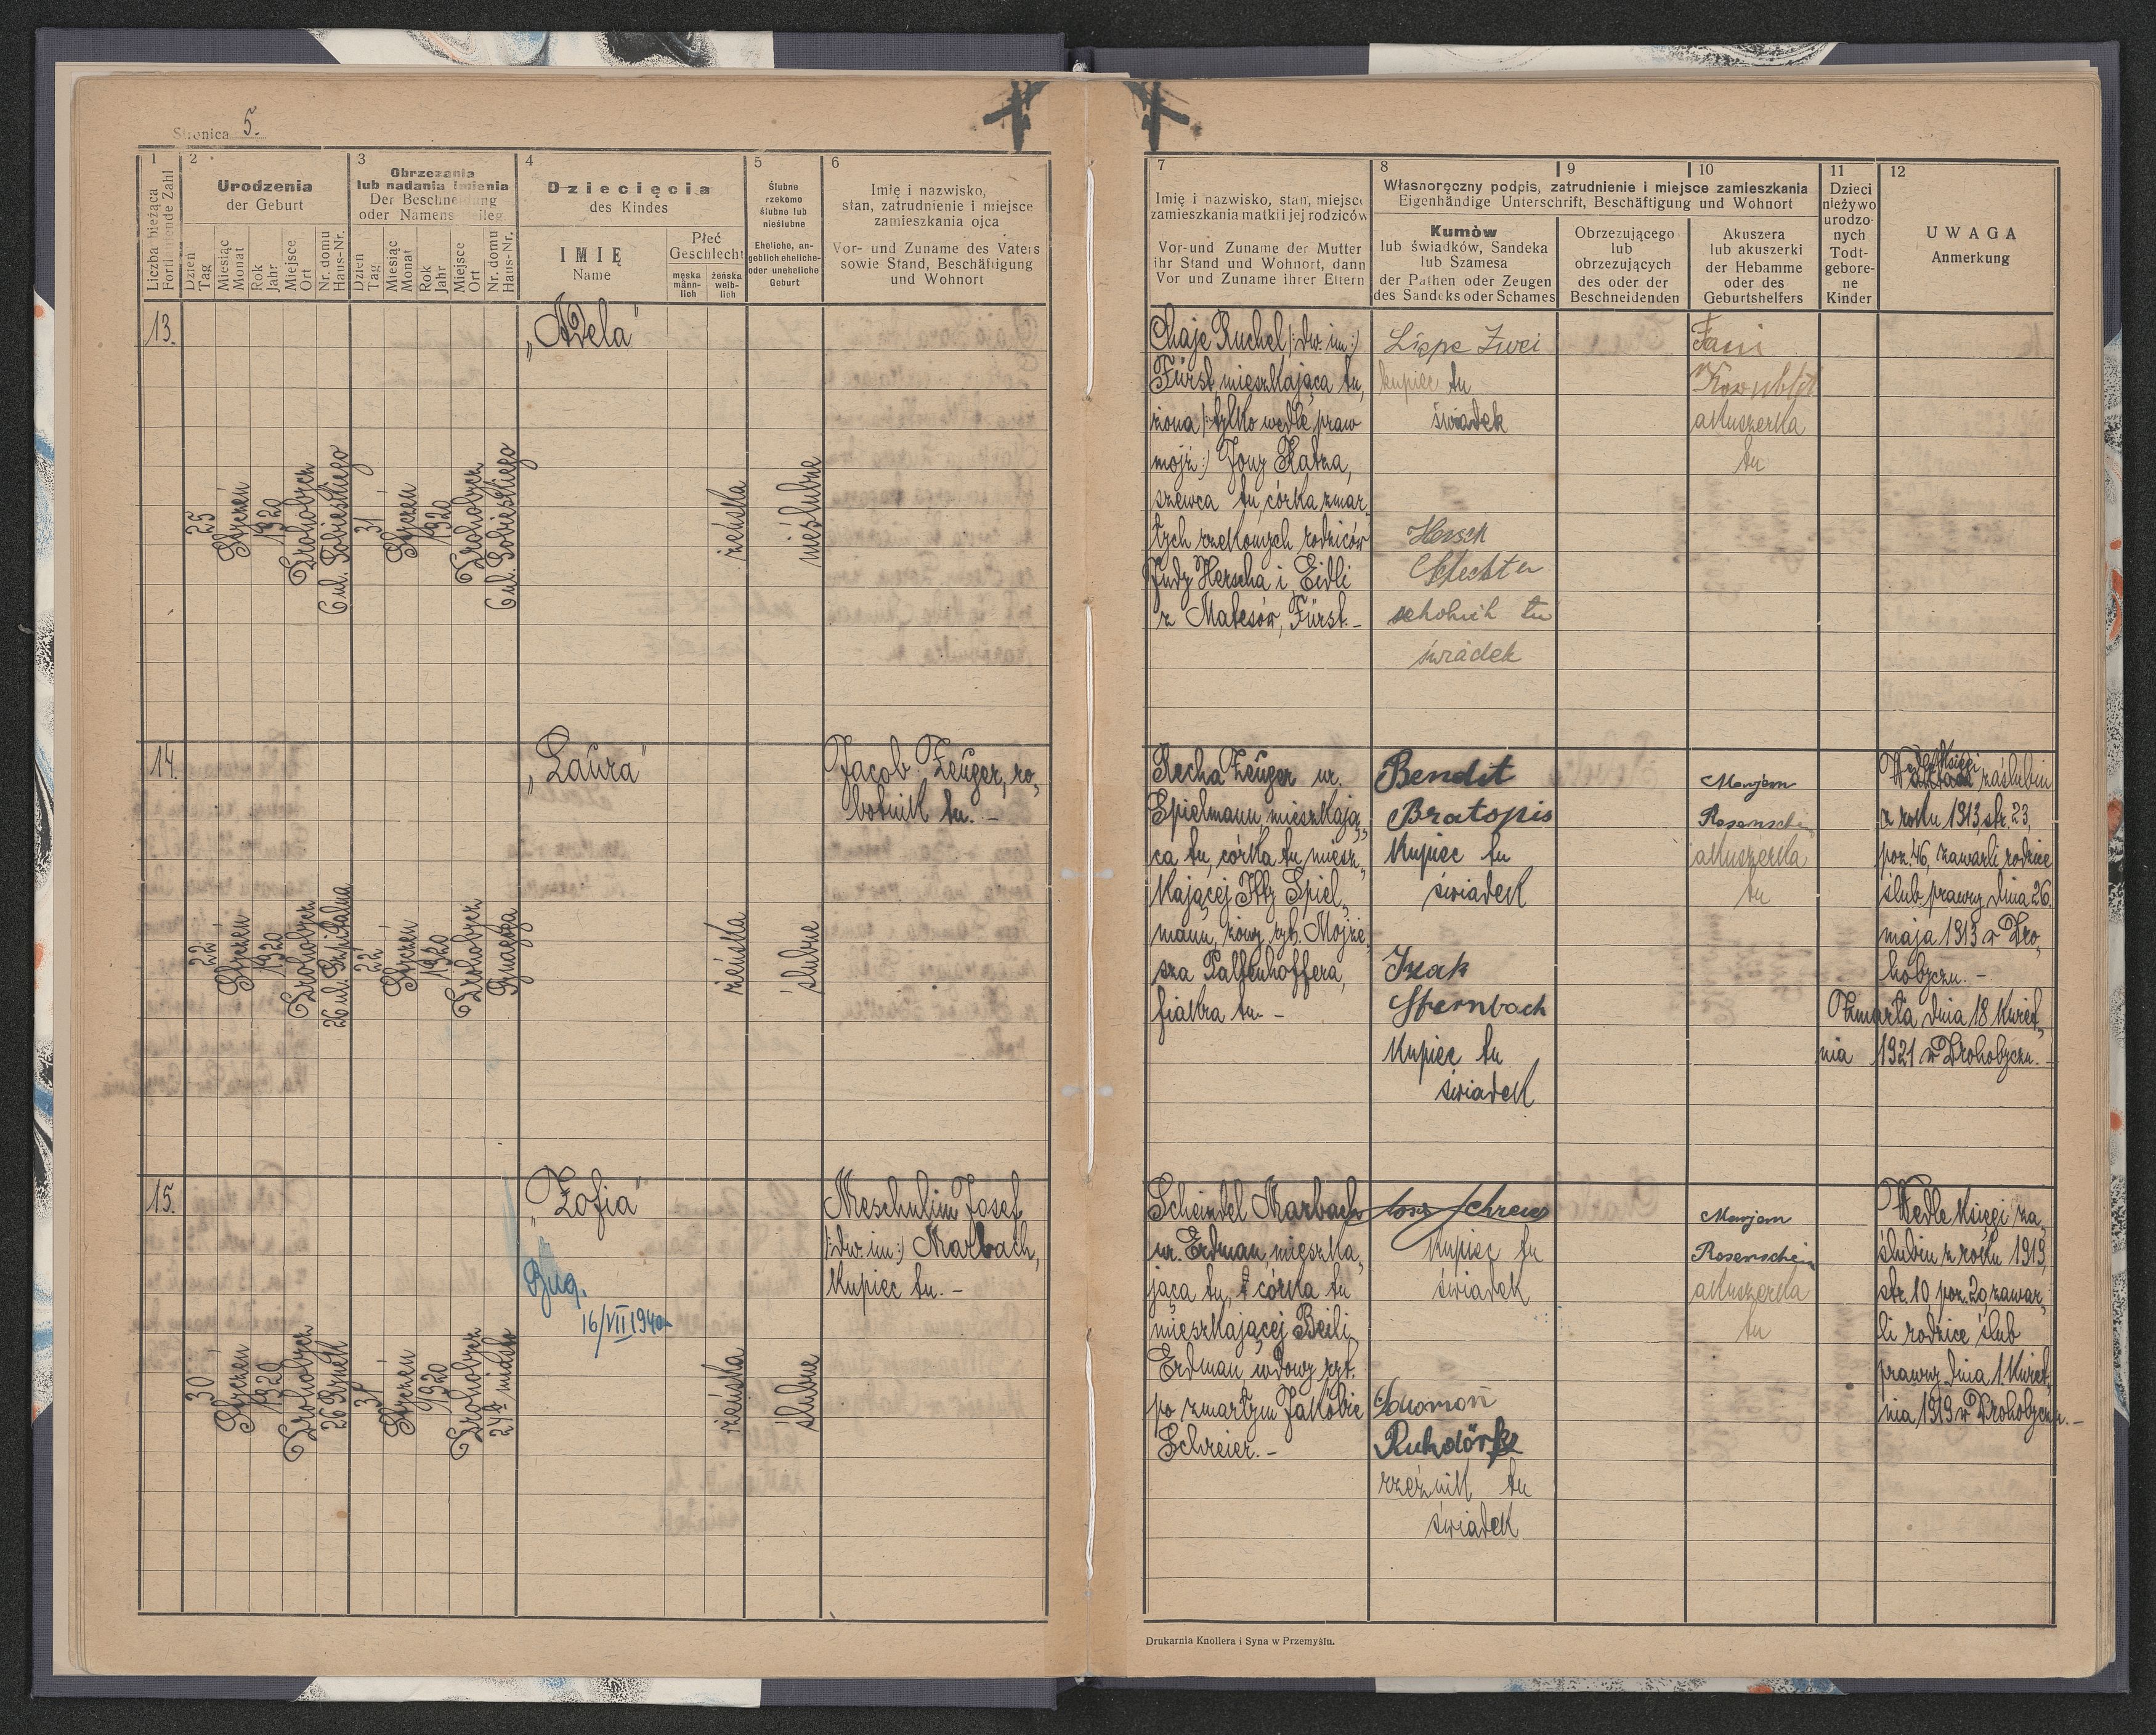 Stronica 5.
1
Liczba bieżąca
Fortlaufende Zahl
2
Urodzenia
der Geburt
Dzień
Tag
Miesiąc
Monat
Rok
Jahr
Miejsce
Ort
Nr. domu
Haus-Nr.
3
Obrzezania
lub nadania imienia
Der Beschneidung
oder Namens-Beileg
Dzień
Tag
Miesiąc
Monat
Rok
Jahr
Miejsce
Ort
Nr. domu
Haus-Nr.
4
Dziecięcia
des Kindes
IMIĘ
Name
Płeć
Geschlecht
męska
männ-
lich
żeńska
weib-
lich
5
Ślubne
rzekomo
ślubne lub
nieślubne
Eheliche, an-
geblich eheliche-
oder uneheliche
Geburt
6
Imię i nazwisko,
stan, zatrudnienie i miejsce
zamieszkania ojca
Vor- und Zuname des Vaters
sowie Stand, Beschäftigung
und Wohnort
7
Imię i nazwisko, stan, miejsce
zamieszkania matki i jej rodziców
Vor-und Zuname der Mutter
ihr Stand und Wohnort, dann
Vor und Zuname ihrer Eltern
8
9
10
Własnoręczny podpis, zatrudnienie i miejsce zamieszkania
Eigenhändige Unterschrift, Beschäftigung und Wohnort
Kumów
lub świadków, Sandeka
lub Szamesa
der Pathen oder Zeugen
des Sandeks oder Schames
Obrzezującego
lub
obrzezujących
des oder der
Beschneidenden
Akuszera
lub akuszerki
der Hebamme
oder des
Geburtshelfers
11
Dzieci
nieżywo
urodzo-
nych
Todt-
gebore-
ne
Kinder
12
UWAGA
Anmerkung
13.
25
Styczeń
1920
Drohobycz
6 ul. Sobieskiego
31
Styczeń
1920
Drohobycz
6 ul. Sobieskiego
„Adela"
żeńska
nieślubne
Chaje Ruchel /:dw. im:/
Fürst mieszkająca tu,
żona /:tylko wedle praw
mojż:/ Jony Katza,
szewca tu, córka zmar-
łych rzekomych rodziców
Judy Herscha i Eidli
z Matesów, Fürst.-
Lippe Zwei
kupiec tu
świadek
Hersch
Schechter
szkolnik tu
świadek
Fani
akuszerka
tu
14.
22
Styczeń
1920
Drohobycz
26 ul. Szpitalna
22
Styczeń
1920
Drohobycz
Synagoga
„Laura"
żeńska
ślubne
Jacob Zeuger, ro„
botnik tu. -
Recha Zeuger ur.
Spielmann, mieszkają„
ca tu, córka tu, miesz„
kającej Itty Spiel„
mann, żony ryt. Mojże„
sza Palfenhoffera,
fiakra tu -
Bendit
Bratspis
Kupiec tu
świadek
Izak
Sternbach
Kupiec tu
świadek
Marjem
Rosenschein
akuszerka
tu
Wedle Księgi zaślubin
z roku 1913, str. 23,
poz. 46, zawarli rodzice
ślub prawny dnia 26.
maja 1913 w Dro„
hobyczu. -
Zmarła dnia 18 Kwiet„
nia 1921 w Drohobyczu. -
15.
30
Styczeń
1920
Drohobycz
26 Rynek
31
Styczeń
1920
Drohobycz
24 miasto
„Zofia"
16/VII 1940
żeńska
ślubne
Meschulim Josef
/:dw. im:/ Marbach,
Kupiec tu. -
Scheindel Marbach
ur. Erdman, mieszka„
jąca tu, córka tu
mieszkającej Beili
Erdman, wdowy ryt.
po zmarłym Jakóbie
Schreier. -
Schreier
Kupiec tu
świadek
Salomon
Ruhdörfer
rzeźnik tu
świadek
Marjem
Rosenschein
akuszerka
tu
Wedle Księgi za„
ślubin z roku 1919,
str. 10, poz. 20, zawar„
li rodzice ślub
prawny dnia 1 Kwiet„
nia, 1919 w Drohobyczu. -
Drukarnia Knollera i Syna w Przemyślu.